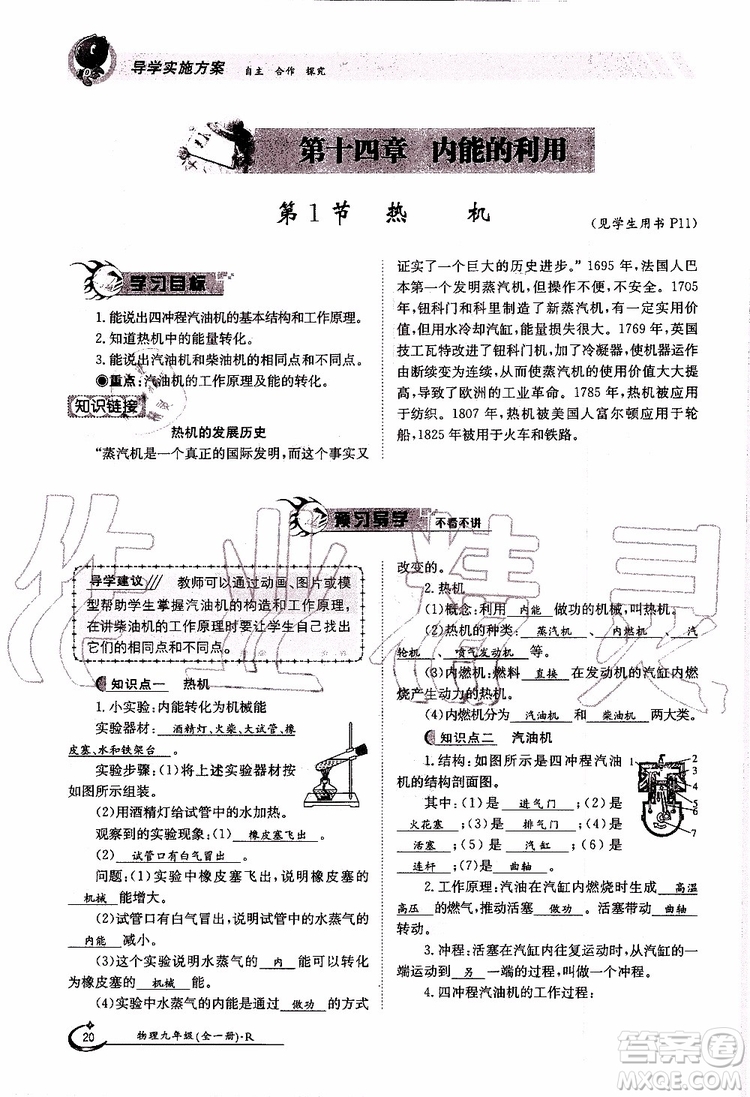 导学实施方案 自主 合作 探究
第十四章 内能的利用
第1节 热 机
(见学生用书 P11)
学习目标
1.能说出四冲程汽油机的基本结构和工作原理。
2.知道热机中的能量转化。
3.能说出汽油机和柴油机的相同点和不同点。
◉重点:汽油机的工作原理及能的转化。
知识链接
热机的发展历史
“蒸汽机是一个真正的国际发明,而这个事实又
证实了一个巨大的历史进步。”1695 年,法国人巴
本第一个发明蒸汽机,但操作不便,不安全。1705
年,钮科门和科里制造了新蒸汽机,有一定实用价
值,但用水冷却汽缸,能量损失很大。1769 年,英国
技工瓦特改进了钮科门机,加了冷凝器,使机器运作
由断续变为连续,从而使蒸汽机的使用价值大大提
高,导致了欧洲的工业革命。1785 年,热机被应用
于纺织。1807 年,热机被美国人富尔顿应用于轮
船,1825 年被用于火车和铁路。
预习导学 不看不讲
导学建议 教师可以通过动画、图片或模
型帮助学生掌握汽油机的构造和工作原理,
在讲柴油机的工作原理时要让学生自己找出
它们的相同点和不同点。
知识点一 热机
1.小实验:内能转化为机械能
实验器材: 酒精灯、火柴、大试管、橡
皮塞、水和铁架台 。
实验步骤:(1)将上述实验器材
如图所示组装。
(2)用酒精灯给试管中的水加热。
观察到的实验现象:(1) 橡皮塞飞出 ;
(2) 试管口有白气冒出 。
问题:(1)实验中橡皮塞飞出,说明橡皮塞的
机械 能增大。
(2)试管口有白气冒出,说明试管中水蒸气的
内能 减小。
(3)这个实验中水蒸气的 内 能可以转化
为橡皮塞的 机械 能。
(4)实验中水蒸气的内能是通过 做功 方式
改变的。
2.热机
(1)概念:利用 内能 做功的机械,叫热机。
(2)热机的种类: 蒸汽机 、 内燃机 、 汽
轮机 、 喷气发动机 等。
(3)内燃机:燃料 直接 在发动机的汽缸内燃
烧产生动力的热机。
(4)内燃机分为 汽油机 、 柴油机 两大类。
知识点二 汽油机
1.结构:如图所示是四冲程汽油
机的结构剖面图。
其中:(1)是 进气门 ;(2)是
火花塞 ;(3)是 排气门 ;(4)是
活塞 ;(5)是 汽缸 ;(6)是
连杆 ;(7)是 曲轴 。
1
2
3
4
5
6
7
2.工作原理:汽油在汽缸内燃烧时生成 高温
高压 的燃气,推动活塞 做功 ,带动 曲轴
转动。
3.冲程:活塞在汽缸内往复运动时,从汽缸的一
端运动到 另 一端的过程,叫做一个冲程。
4.四冲程汽油机的工作过程:
20 物理九年级(全一册)·R
作业精灵
答案圈
MXQE.COM